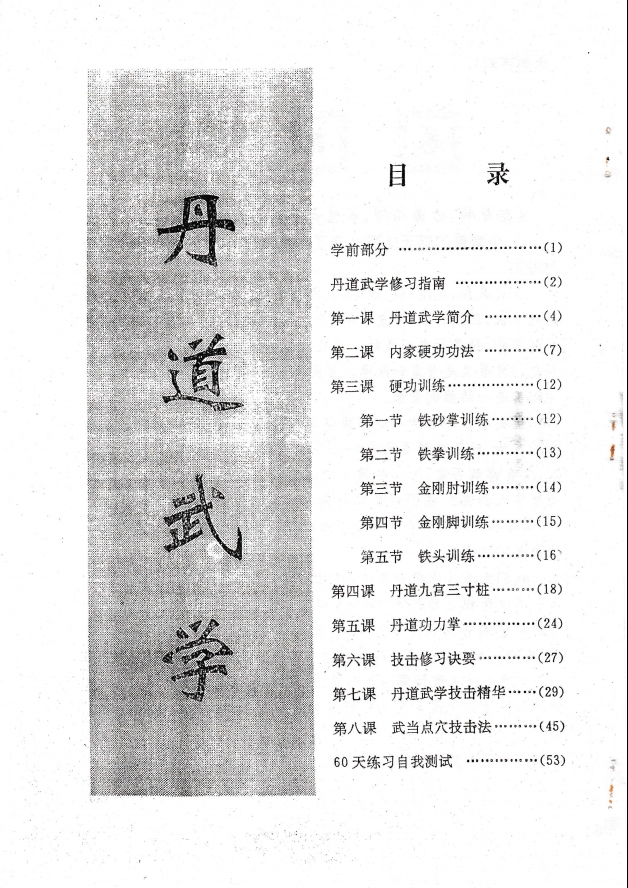 丹道武学
目 录
学前部分 …………………………(1)
丹道武学修习指南 ………………(2)
第一课 丹道武学简介 …………(4)
第二课 内家硬功功法 …………(7)
第三课 硬功训练………………(12)
第一节 铁砂掌训练………(12)
第二节 铁拳训练…………(13)
第三节 金刚肘训练………(14)
第四节 金刚脚训练………(15)
第五节 铁头训练…………(16)
第四课 丹道九宫三寸桩………(18)
第五课 丹道功力掌……………(24)
第六课 技击修习诀要…………(27)
第七课 丹道武学技击精华……(29)
第八课 武当点穴技击法………(45)
60天练习自我测试 ……………(53)